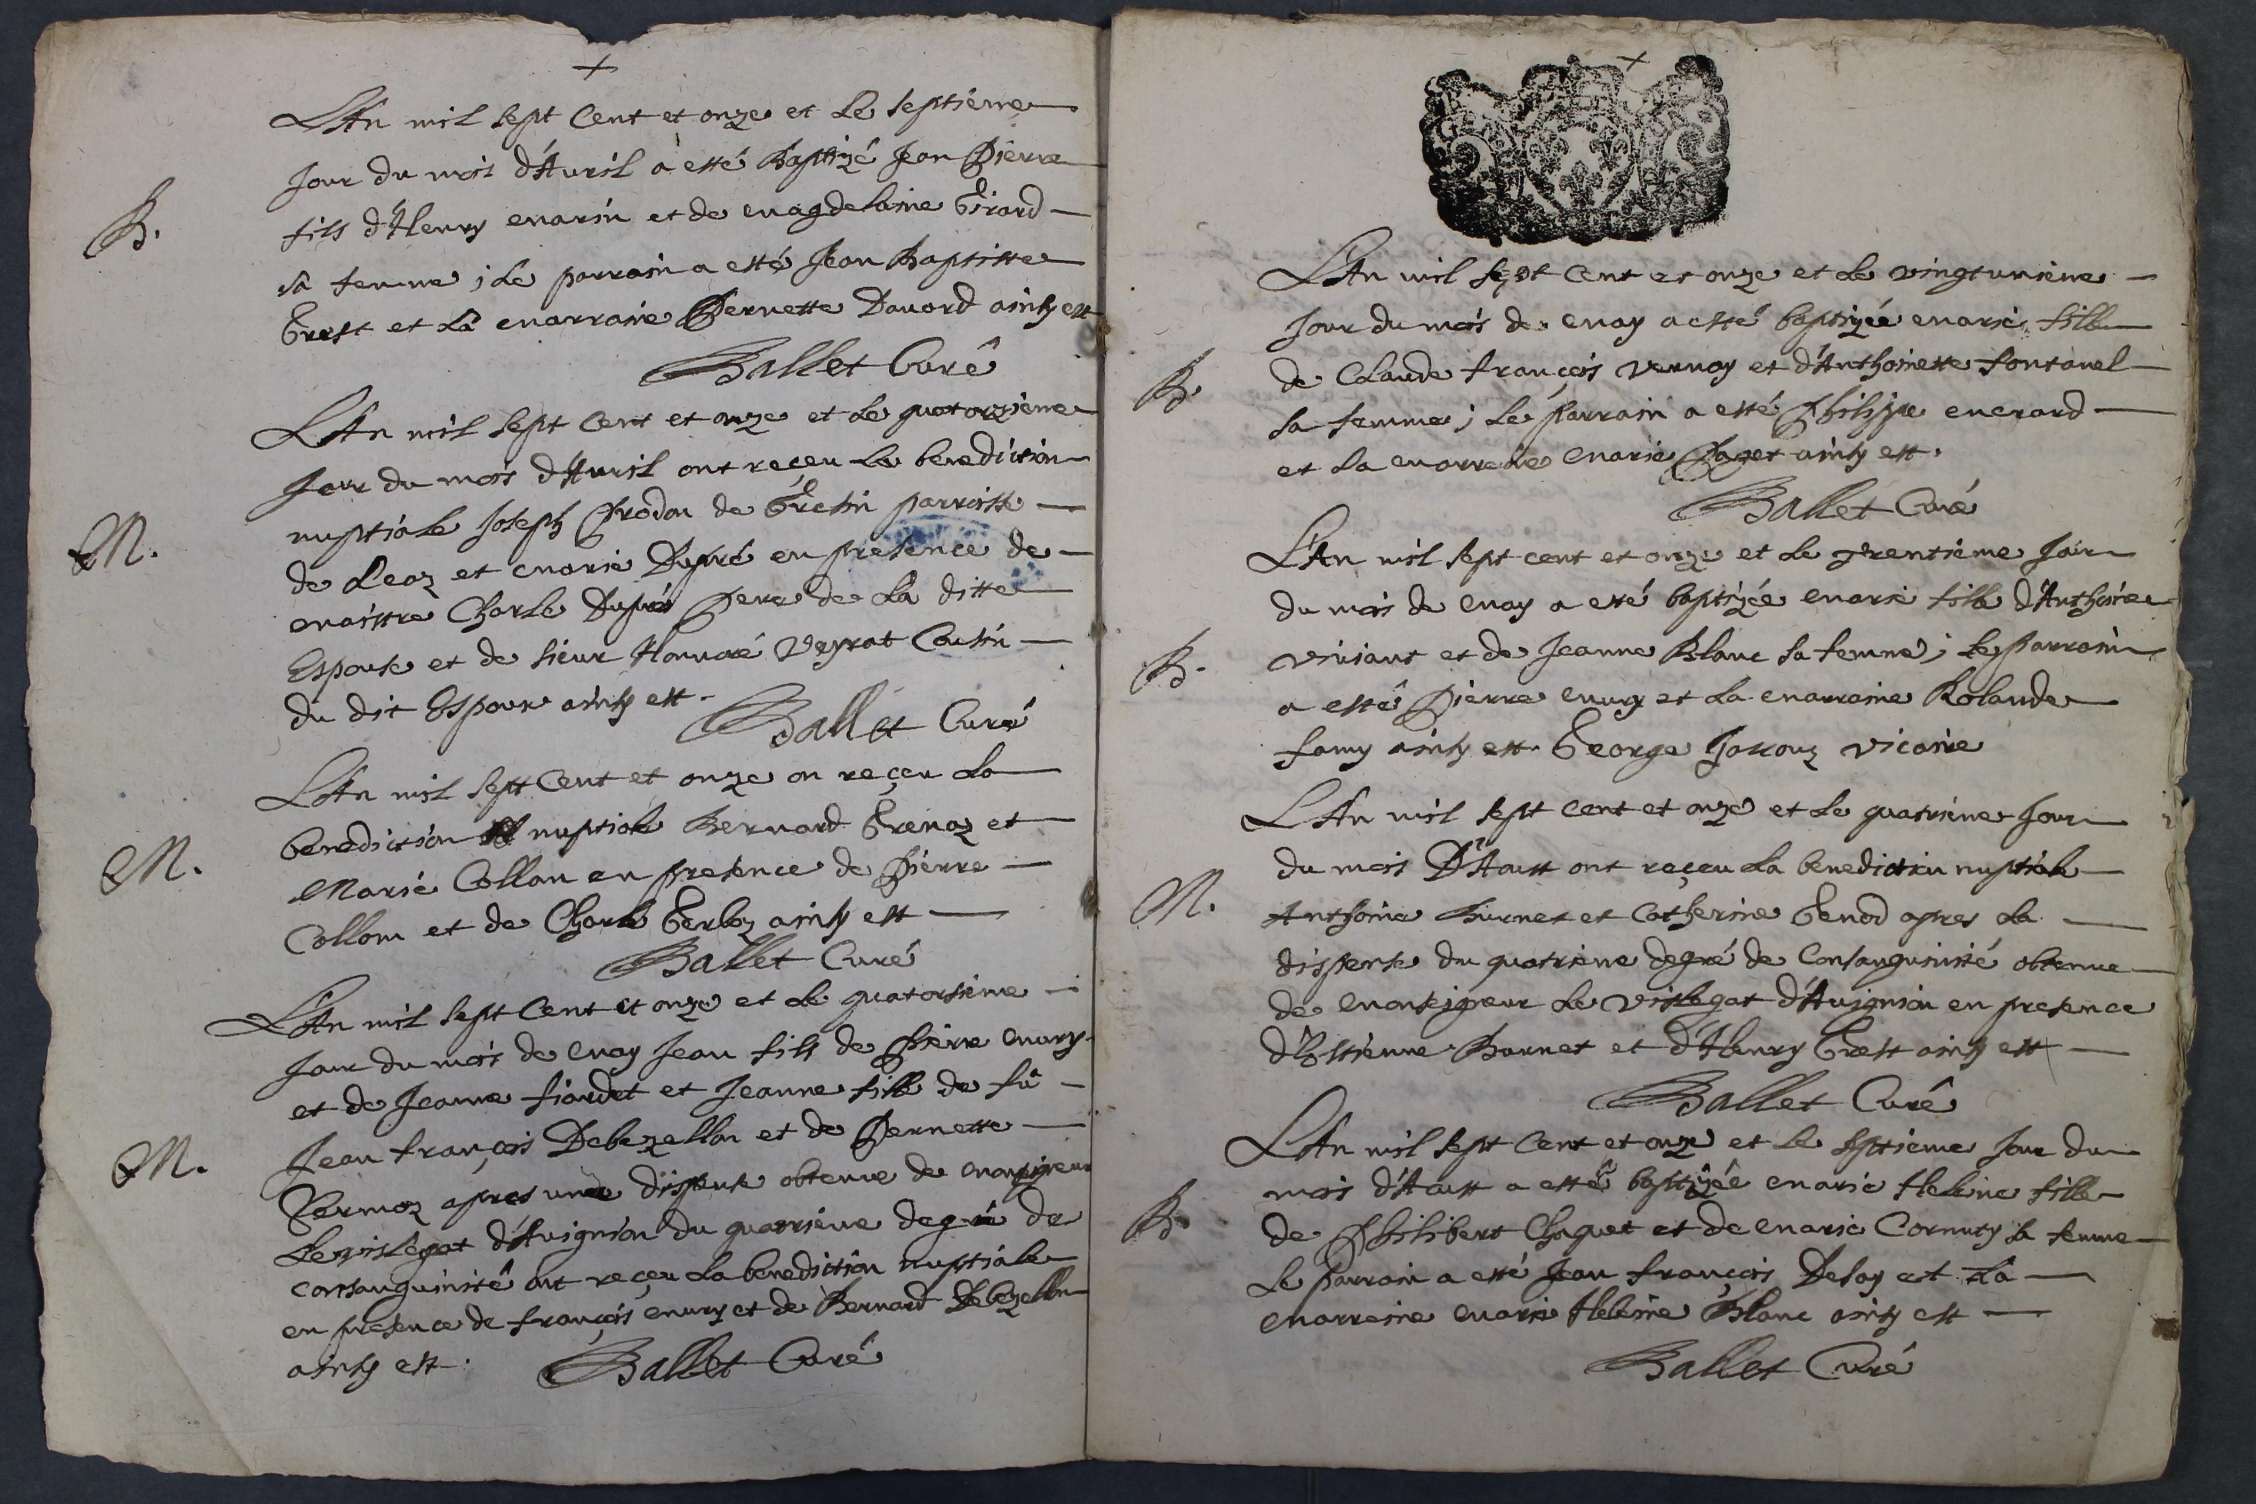 +
L'An mil sept Cent et onze et Le septiéme
Jour du mois d'Auril a esté Baptizé Jean Pierre
B.
fils d'Henry marin et de magdelaine Girard
sa femme ; Le parrain a esté Jean Baptiste
Grest et La marraine Pernette Dauord ainsy est
Ballet Curé
L'An mil sept Cent et onze et Le quatorzieme
Jour du mois d'Auril ont reçeu La benediction
nuptiale Joseph Prodon de Gresin parroisse
M.
de Leaz et marie Dupré en presence de
maistre Charle Dupré Pere de La ditte
Espouse et de sieur Honnoré Veyrat Cousin
du dit Espoux ainsy est.
Ballet Curé
L'An mil sept Cent et onze on reçeu La
benediction nuptiale Bernard Grenaz et
M.
Marie Collom en presence de Pierre
Collom et de Charle Gerboz ainsy est
Ballet Curé
L'An mil sept Cent et onze et Le quatorsieme
Jour du mois de may Jean fils de Pierre mury
et de Jeanne fiardet et Jeanne fille de fû
Jean françois Debezellon et de Pernette
M.
Vermoz apres une dispense obtenue de monseigneur
Le vislegat d'Auignion du quatrieme degré de
consanguinité ont reçeu La benediction nuptiale
en presence de françois mury et de Bernard Debezellon
ainsy est.
Ballet Curé
+
L'An mil sept Cent et onze et Le vingtunieme
Jour du mois de may a esté baptizée marie fille
B.
de Claude françois vernay et d'Anthoinette fontanel
sa femme ; Le parrain a esté Philippe
et La marreine marie Paget ainsy est.
Ballet Curé
L'An mil sept cent et onze et Le trentieme Jour
du mois de may a esté baptizée marie fille d'Anthoine
B.
viuiant et de Jeanne Blanc sa femme ; Le parrain
a esté Pierre mury et La marreine Rolande
famy ainsy est. George Jacouz vicaire
L'An mil sept cent et onze et Le quatrieme Jour
du mois D'Aoust ont reçeu La benediction nuptiale
M.
Anthoine Burnet et Catherine Genod apres La
dispense du quatrieme degré de Consanguinité obtenue
de monseigneur Le vislegat d'Auignion en presence
d'Estienne Burnet et d'Henry Grest ainsy est
Ballet Curé
L'An mil sept Cent et onze et Le septieme Jour du
mois d'Aoust a esté baptizée marie Heleine fille
B.
de Philibert Chaquet et de marie Cornuty sa femme
Le parrain a esté Jean françois Defay et La
marreine marie Heleine Blanc ainsy est
Ballet Curé